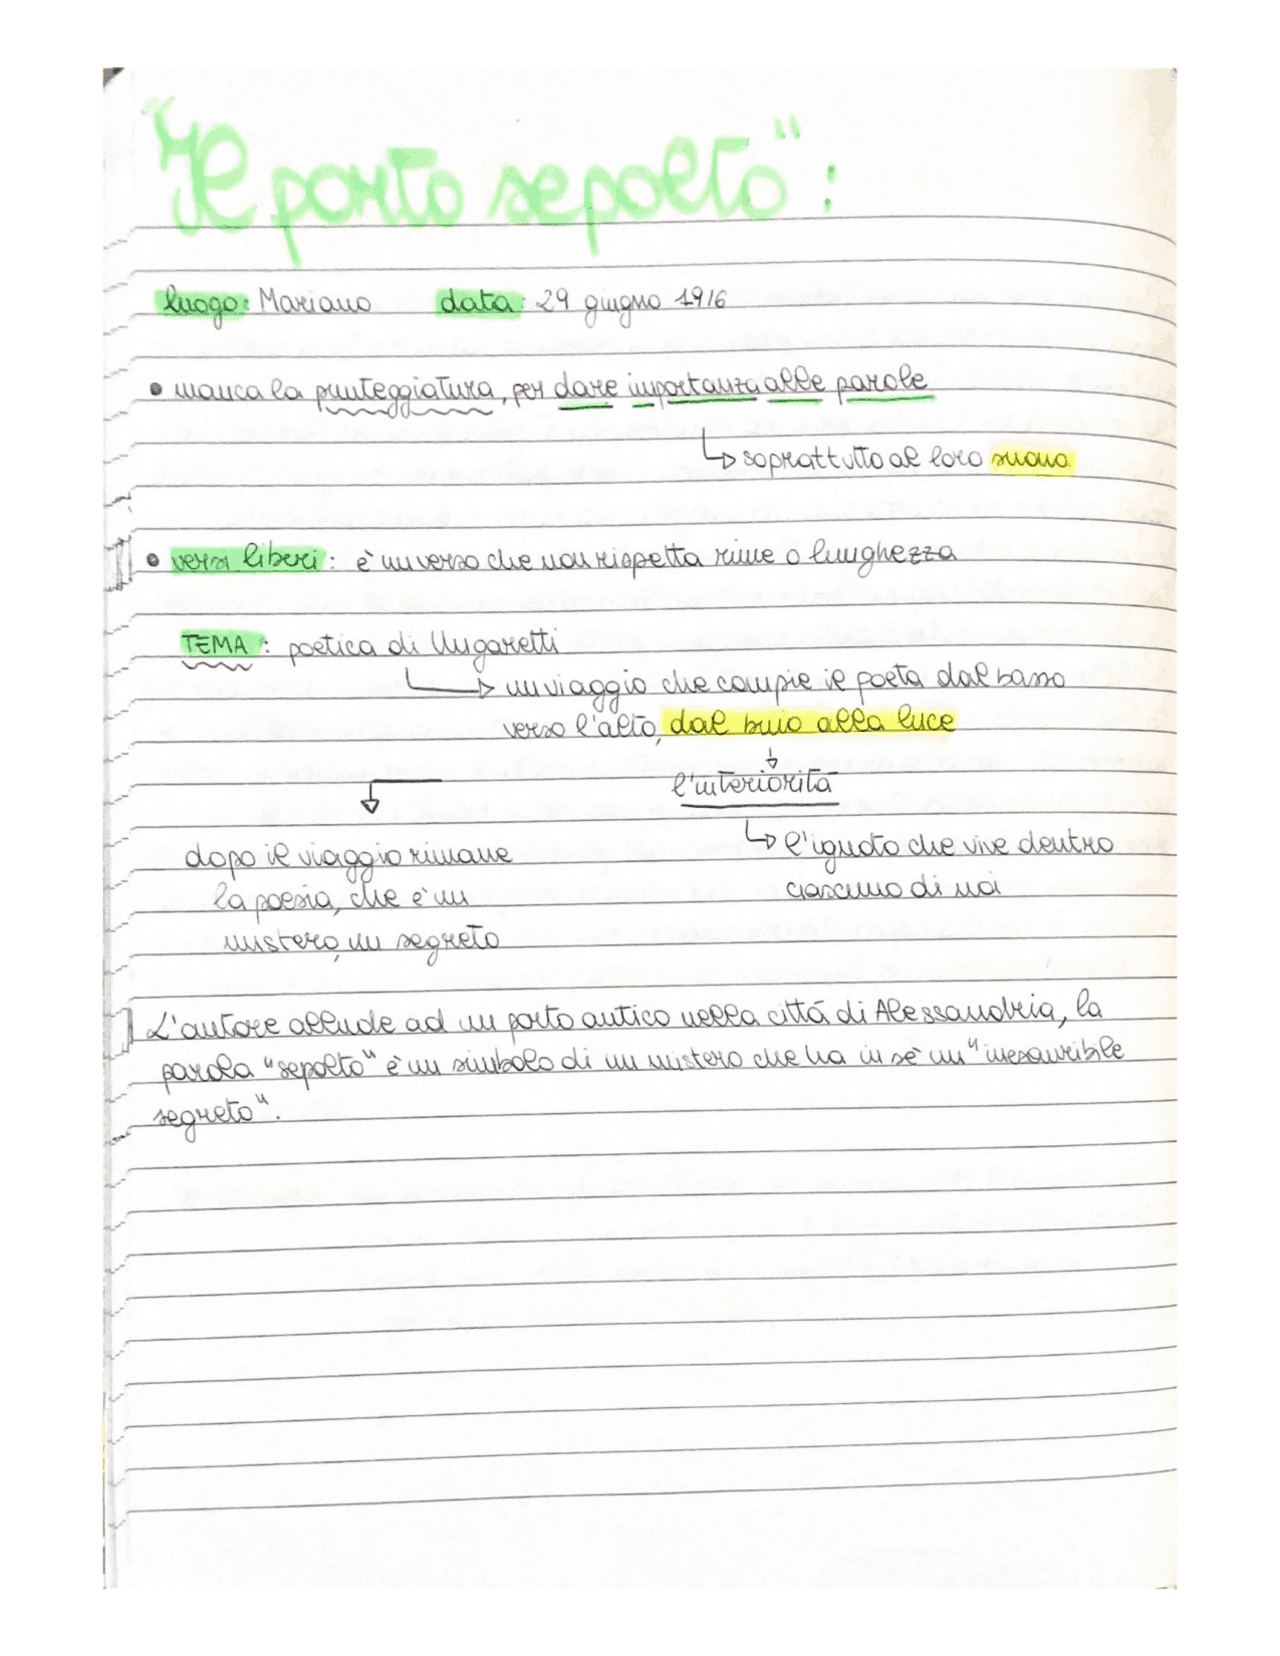 "Il porto sepolto":
luogo: Mariano data: 29 giugno 1916
• manca la punteggiatura, per dare importanza alle parole
soprattutto al loro suono
• versi liberi: è un verso che non rispetta rime o lunghezza
TEMA: poetica di Ungaretti
un viaggio che compie il poeta dal basso
verso l'alto, dal buio alla luce
l'interiorità
dopo il viaggio rimane
la poesia, che è un
mistero, un segreto
l'ignoto che vive dentro
ciascuno di noi
L'autore allude ad un porto antico nella città di Alessandria, la
parola "sepolto" è un simbolo di un mistero che ha in sè un "inesauribile
segreto".